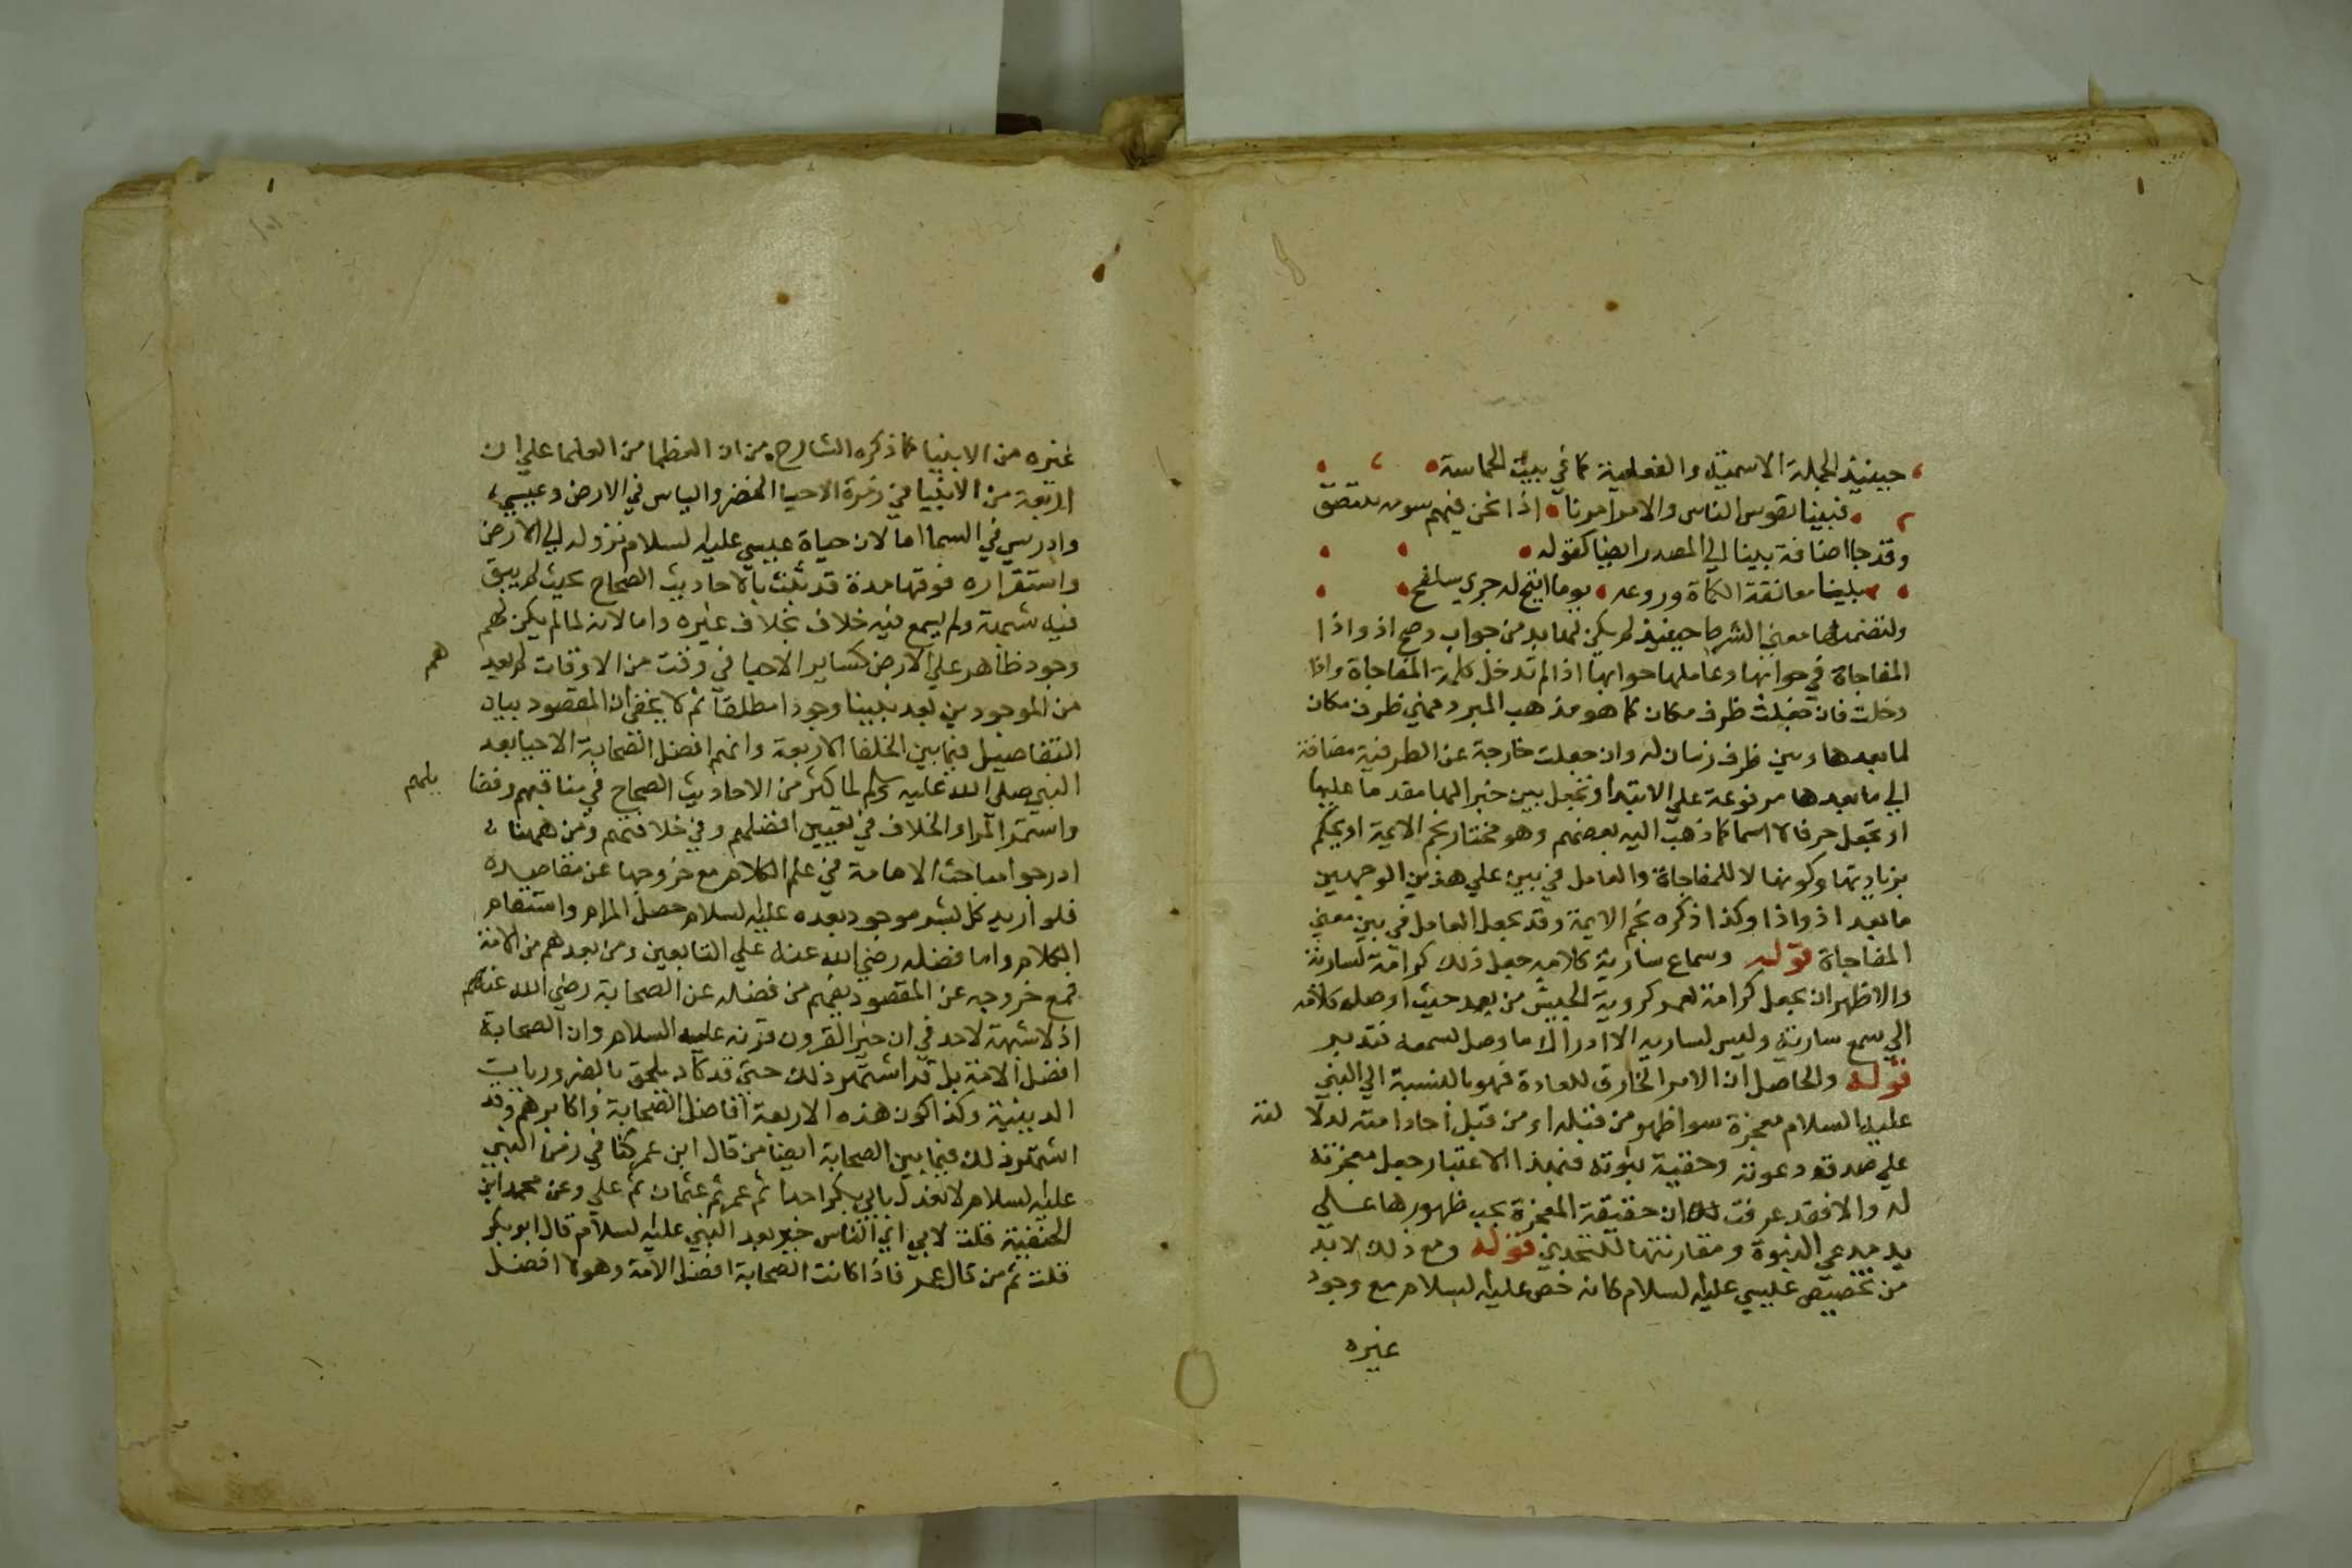 حينئذ الجملة الاسمية والفعلية كما في بيت الحماسة
فبينا نسوس الناس والامر امرنا اذا نحن فيهم سوقة نتنصف
وقد جا اضافة بينا الي المصدر ايضا كقوله
بينا معانقة الكماة وروغه يوما اتيح له جري سلفع
ولتضمنها معني الشرط حينئذ لم يكن لها بد من جواب وصح اذ واذا
المفاجاة في جوابها وعاملها جوابها اذا لم تدخل كلمة المفاجاة واذا
دخلت فان جعلت ظرف مكان كما هو مذهب المبرد فهي ظرف مكان
لما بعدها وبين ظرف زمان له وان جعلت خارجة عن الظرفية مضافة
الي ما بعدها مرفوعة علي الابتدا وتجعل بين خبرا لها مقدما عليها
او تجعل حرفا لا اسما كما ذهب اليه بعضهم وهو مختار نجم الايمة او يحكم
بزيادتها وكونها لا للمفاجاة والعامل في بين علي هذين الوجهين
ما بعد اذ واذا وكذا ذكره نجم الايمة وقد يجعل العامل في بين معني
المفاجاة قوله وسماع سارية كلامه جعل ذلك كرامة لسارية
والاظهر ان يجعل كرامة لعمر كروية الجيش من بعد حيث اوصل كلامه
الي سمع سارية وليس لسارية الا ادراك ما وصل لسمعه فتدبر
قوله والحاصل ان الامر الخارق للعادة فهو بالنسبة الي النبي
عليه السلام معجزة سوا ظهر من قبله او من قبل احاد امته لدلا لته
علي صدق دعوته وحقية نبوته فبهذا الاعتبار جعل معجزته
له والا فقد عرفت ان حقيقة المعجزة يجب ظهورها علي
يد مدعي النبوة ومقارنتها للتحدي قوله ومع ذلك لا بد
من تخصيص عيسي عليه السلام كانه خص عليه السلام مع وجود
غيره
غيره من الانبيا كما ذكره الشارح من ان العظما من العلما علي ان
اربعة من الانبيا في زمرة الاحيا الخضر والياس في الارض وعيسي
وادريس في السما اما لان حياة عيسي عليه السلام نزوله الي الارض
واستقراره فوقها مدة قد ثبت بالاحاديث الصحاح بحيث لم يبق
فيه شبهة ولم يسمع فيه خلاف بخلاف غيره واما لانه لما لم يكن لهم
وجود ظاهر علي الارض كساير الاحيا في وقت من الاوقات لم يعد هم
من الموجودين بعد نبينا وجودا مطلقا ثم لا يخفي ان المقصود بيان
التفاضيل فيما بين الخلفا الاربعة وانهم افضل الصحابة الاحيا بعد
النبي صلي الله عليه وسلم لما كثر من الاحاديث الصحاح في مناقبهم وفضا يلهم
واستمر المرا والخلاف في تعيين افضلهم وفي خلافتهم ومن ههنا
ادرجوا مباحث الامامة في علم الكلام مع خروجها عن مقاصده
فلو اريد كل بشر موجود بعده عليه السلام حصل المرام واستقام
الكلام واما فضله رضي الله عنه علي التابعين ومن بعدهم من الامة
فمع خروجه عن المقصود يفهم من فضله عن الصحابة رضي الله عنهم
اذ لا شبهة لاحد في ان خير القرون قرنه عليه السلام وان الصحابة
افضل الامة بل قد اشتهر ذلك حتي قد كاد يلحق بالضروريات
الدينية وكذا كون هذه الاربعة افاضل الصحابة واكابرهم وقد
اشتهر ذلك فيما بين الصحابة ايضا من قال ابن عمر كنا في زمن النبي
عليه السلام لا نعدل بابي بكر احدا ثم عمر ثم عثمان ثم علي وعن محمد ابن
الحنفية قلت لابي اي الناس خير بعد النبي عليه السلام قال ابو بكر
قلت ثم من قال عمر فاذا كانت الصحابة افضل الامة وهولا افضل